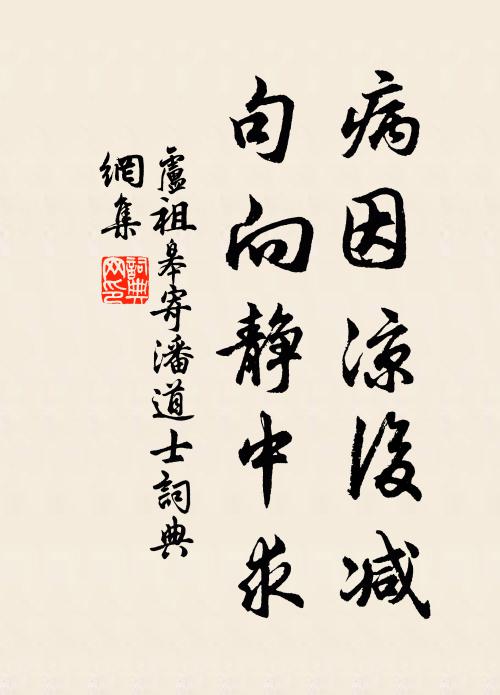 病因凉後减
句向静中求
盧祖皋寄潘道士詞典
網集
詞典網印